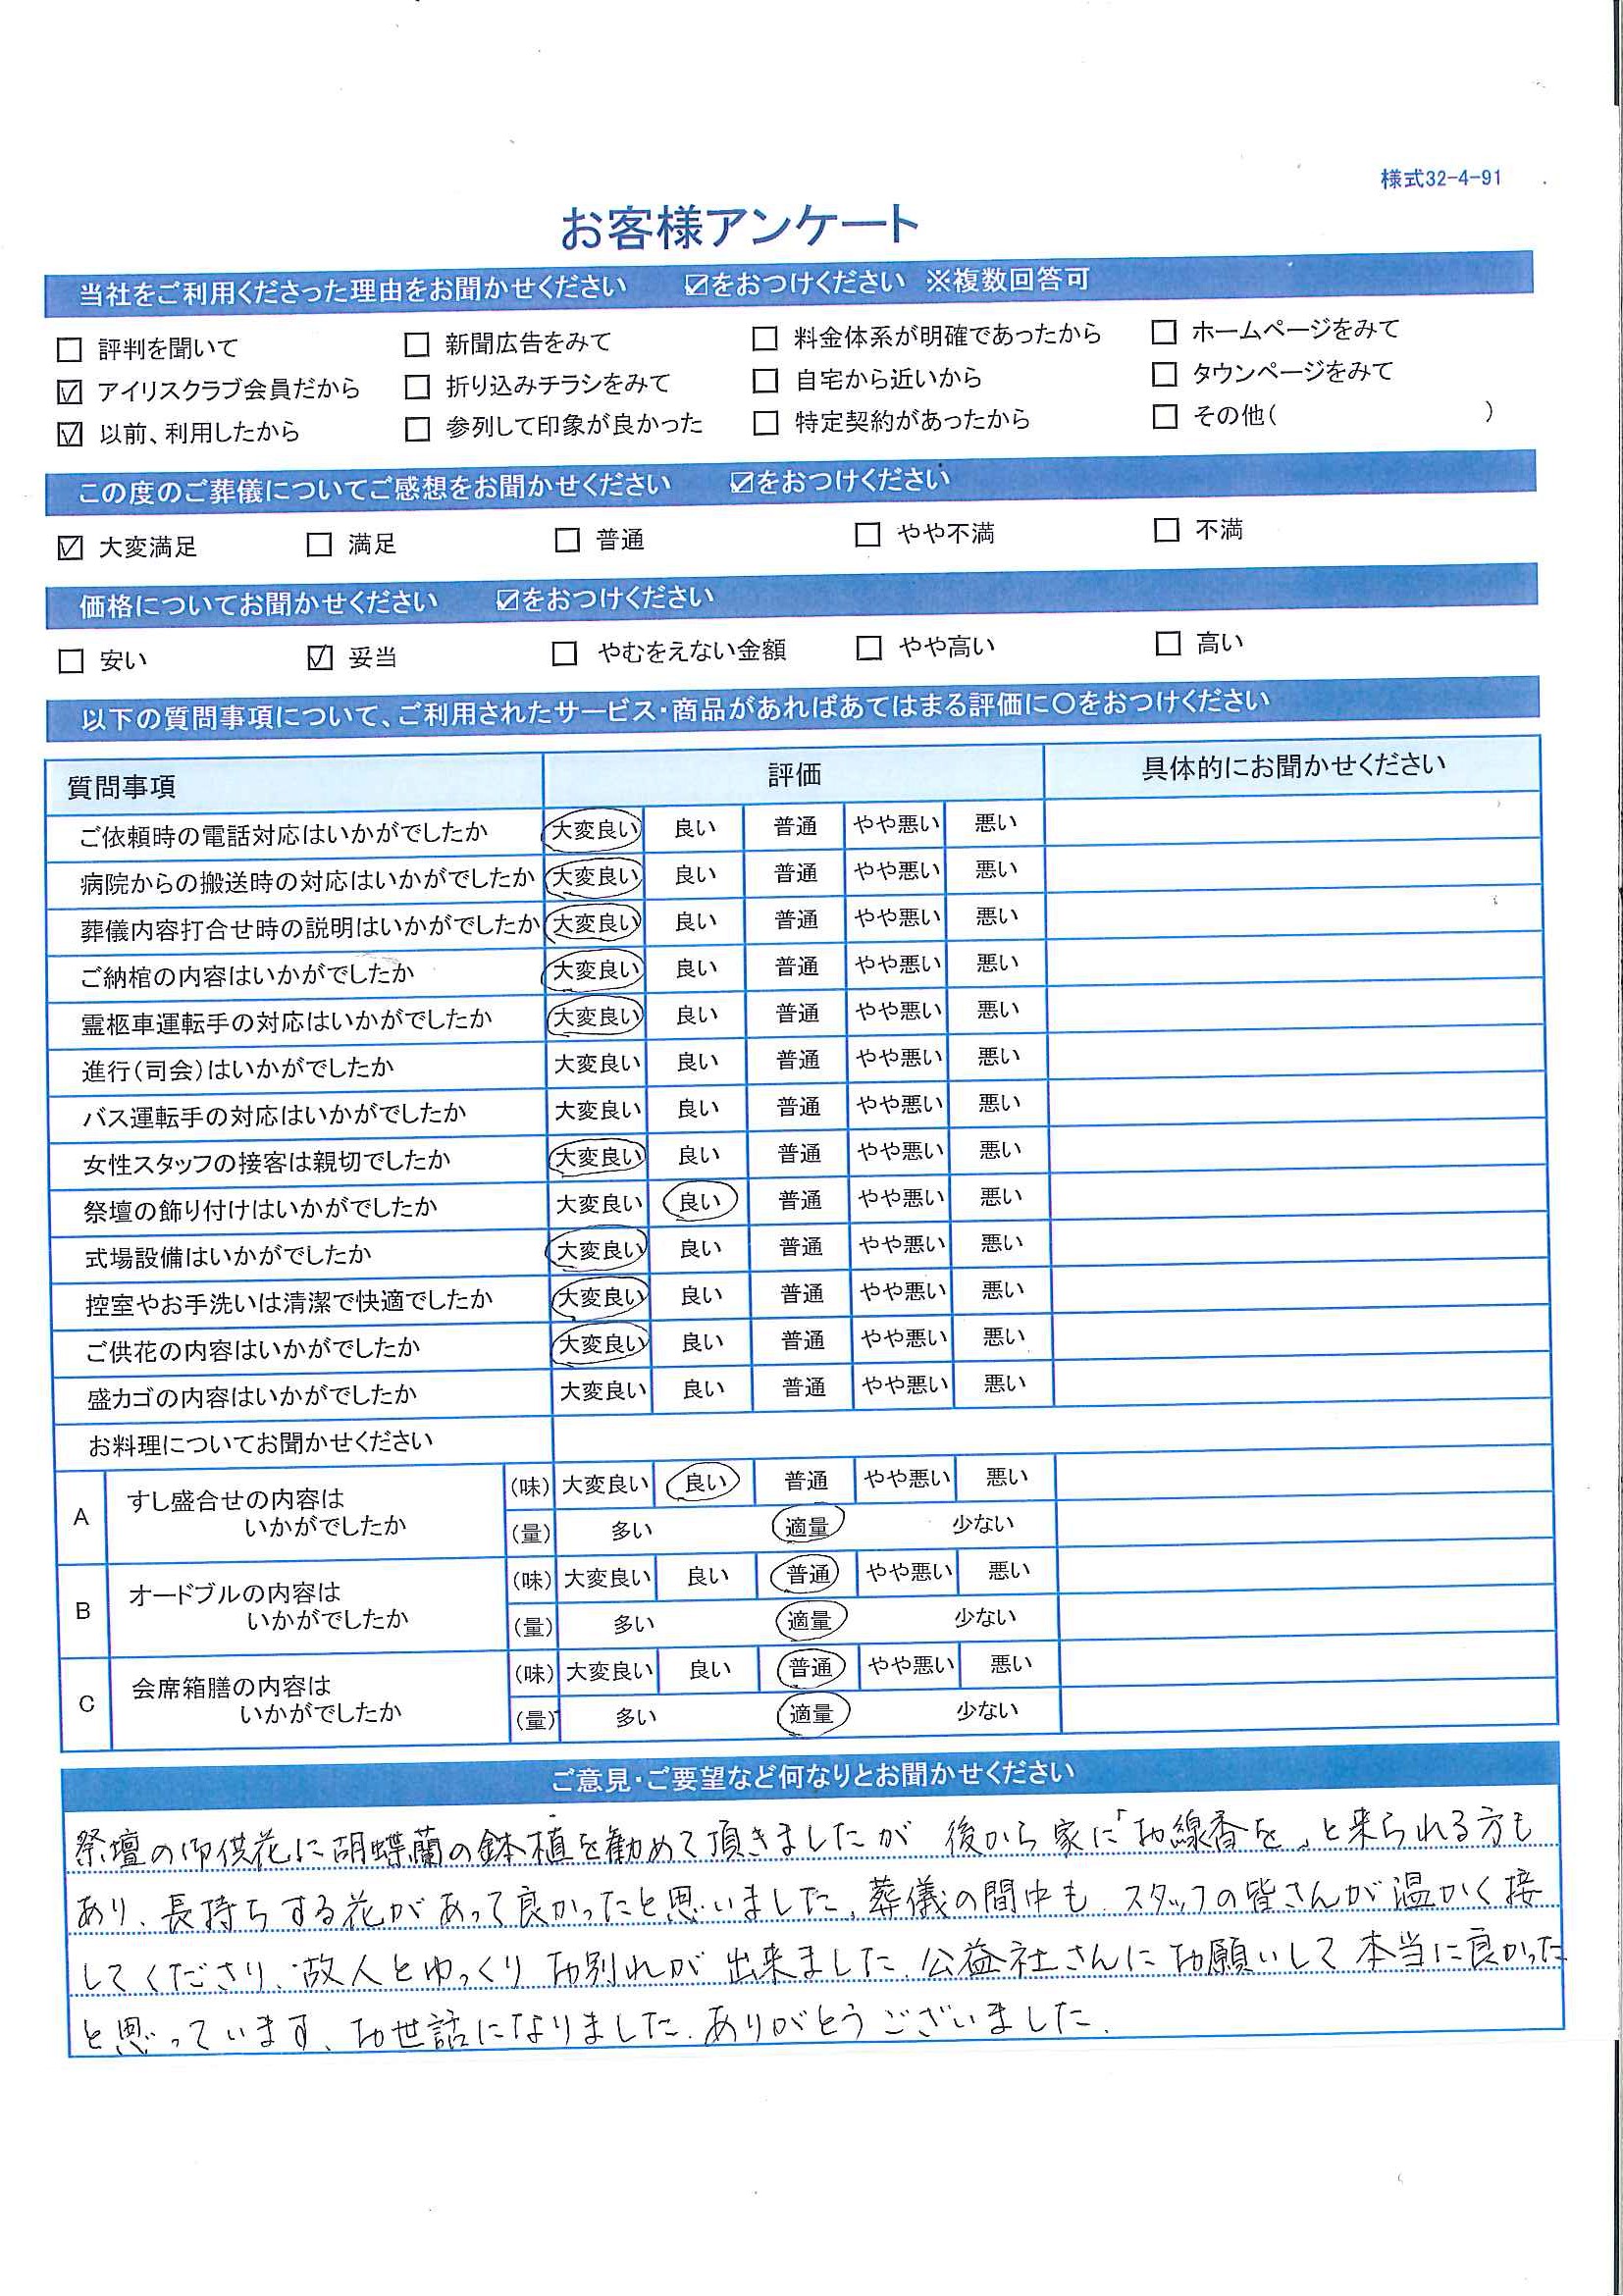 様式32-4-91
お客様アンケート
当社をご利用くださった理由をお聞かせください ☑をおつけください ※複数回答可
☐ 評判を聞いて ☐ 新聞広告をみて ☐ 料金体系が明確であったから ☐ ホームページをみて
☑ アイリスクラブ会員だから ☐ 折り込みチラシをみて ☐ 自宅から近いから ☐ タウンページをみて
☑ 以前、利用したから ☐ 参列して印象が良かった ☐ 特定契約があったから ☐ その他( )
この度のご葬儀についてご感想をお聞かせください ☑をおつけください
☑ 大変満足 ☐ 満足 ☐ 普通 ☐ やや不満 ☐ 不満
価格についてお聞かせください ☑をおつけください
☐ 安い ☑ 妥当 ☐ やむをえない金額 ☐ やや高い ☐ 高い
以下の質問事項について、ご利用されたサービス・商品があればあてはまる評価に〇をおつけください
質問事項 評価 具体的にお聞かせください
ご依頼時の電話対応はいかがでしたか 大変良い 良い 普通 やや悪い 悪い
病院からの搬送時の対応はいかがでしたか 大変良い 良い 普通 やや悪い 悪い
葬儀内容打合せ時の説明はいかがでしたか 大変良い 良い 普通 やや悪い 悪い
ご納棺の内容はいかがでしたか 大変良い 良い 普通 やや悪い 悪い
霊柩車運転手の対応はいかがでしたか 大変良い 良い 普通 やや悪い 悪い
進行(司会)はいかがでしたか 大変良い 良い 普通 やや悪い 悪い
バス運転手の対応はいかがでしたか 大変良い 良い 普通 やや悪い 悪い
女性スタッフの接客は親切でしたか 大変良い 良い 普通 やや悪い 悪い
祭壇の飾り付けはいかがでしたか 大変良い 良い 普通 やや悪い 悪い
式場設備はいかがでしたか 大変良い 良い 普通 やや悪い 悪い
控室やお手洗いは清潔で快適でしたか 大変良い 良い 普通 やや悪い 悪い
ご供花の内容はいかがでしたか 大変良い 良い 普通 やや悪い 悪い
盛カゴの内容はいかがでしたか 大変良い 良い 普通 やや悪い 悪い
お料理についてお聞かせください
A すし盛合せの内容は
いかがでしたか
(味) 大変良い 良い 普通 やや悪い 悪い
(量) 多い 適量 少ない
B オードブルの内容は
いかがでしたか
(味) 大変良い 良い 普通 やや悪い 悪い
(量) 多い 適量 少ない
C 会席箱膳の内容は
いかがでしたか
(味) 大変良い 良い 普通 やや悪い 悪い
(量) 多い 適量 少ない
ご意見・ご要望など何なりとお聞かせください
祭壇の御供花に胡蝶蘭の鉢植を勧めて頂きましたが 後から家に「お線香を」と来られる方も
あり、長持ちする花があって良かったと思いました。葬儀の間中も スタッフの皆さんが温かく接
してくださり、故人とゆっくりお別れが出来ました。公益社さんにお願いして本当に良かった
と思っています、お世話になりました。ありがとうございました。